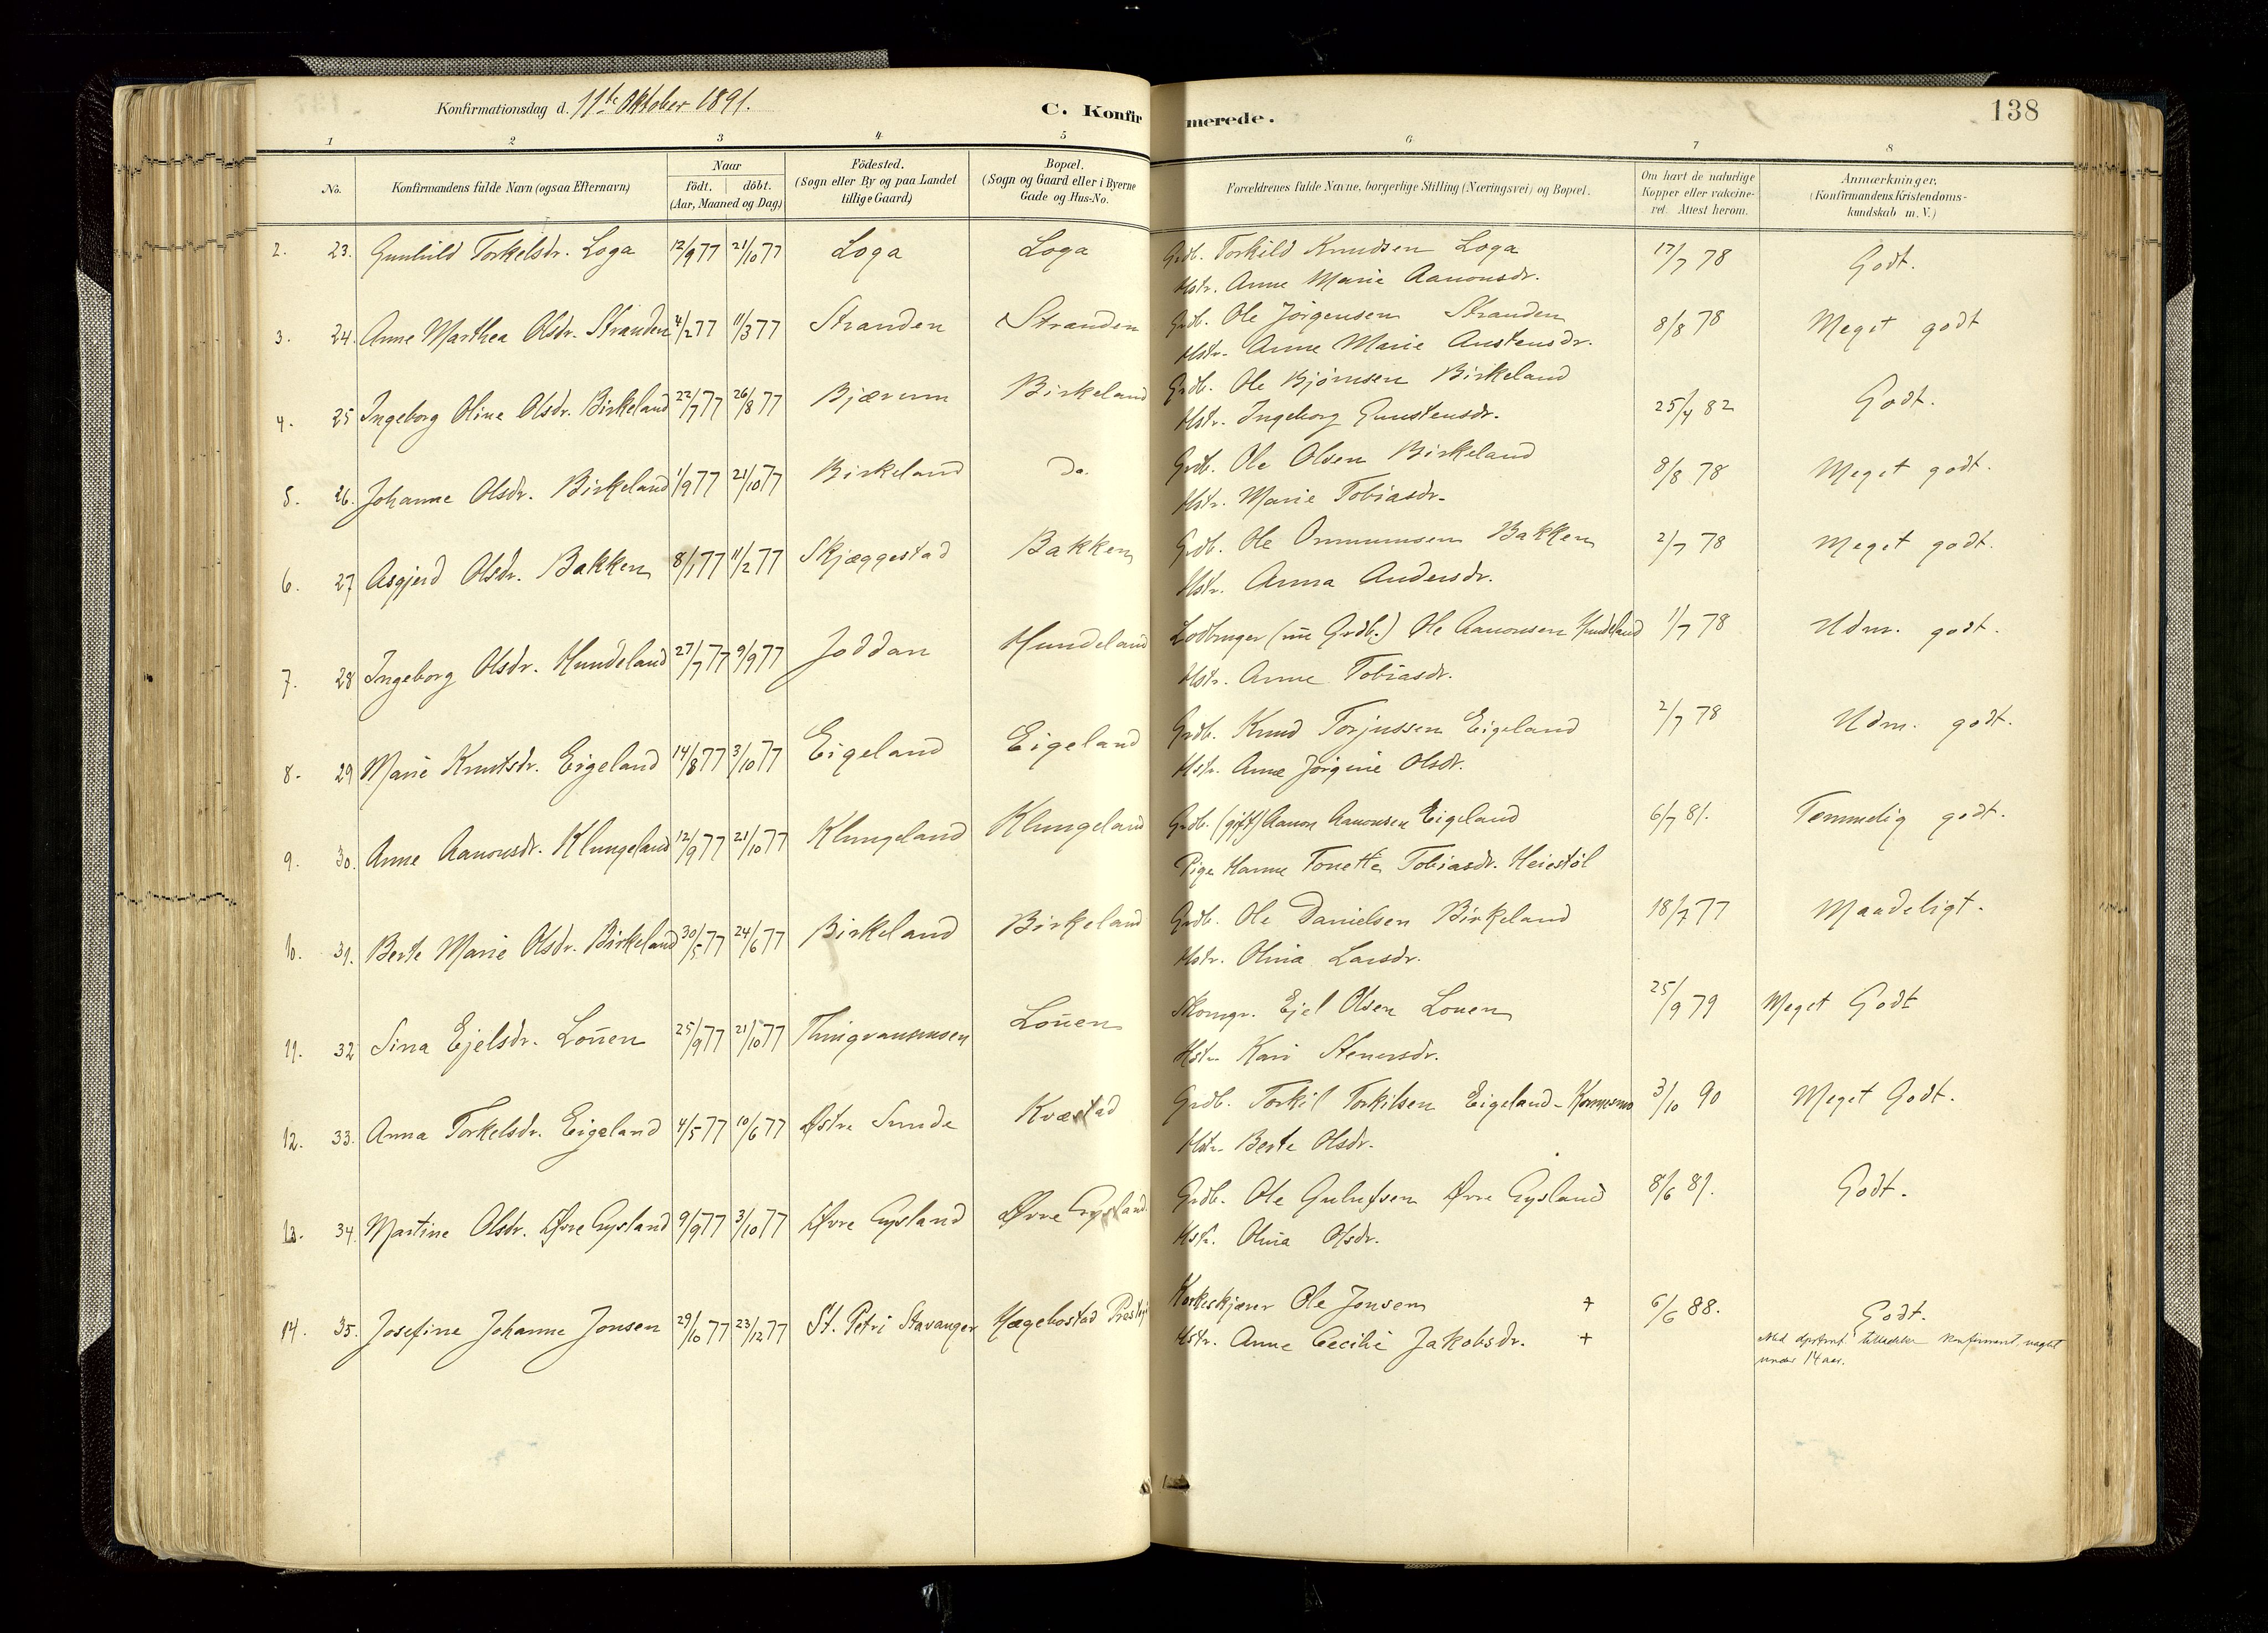 Konfirmationsdag d. 11te Oktober 1891.
C. Konfirmerede.
138
1 2 3 4 5 6 7 8
No.
Konfirmandens fulde Navn (ogsaa Efternavn)
Naar
födt. döbt.
(Aar, Maaned og Dag)
Födested.
(Sogn eller By og paa Landet
tillige Gaard)
Bopæl.
(Sogn og Gaard eller i Byerne
Gade og Hus-No.
Forældrenes fulde Navne, borgerlige Stilling (Næringsvei) og Bopæl.
Om havt de naturlige
Kopper eller vakcine-
ret. Attest herom.
Anmærkninger.
(Konfirmandens Kristendoms-
kundskab m. V.)
2. 23. Gunhild Torkelsdr. Loga 12/9 77 21/10 77 Loga Loga Grdb. Torkild Knudsen Loga 17/7 78 Godt.
Hstr. Anne Marie Aanonsdr.
3. 24. Anne Marthea Olsdr. Stranden 4/2 77 11/3 77 Stranden Stranden Grdb. Ole Jörgensen Stranden 8/8 78 Meget godt
Hstr. Anne Marie Austensdr.
4. 25 Ingeborg Oline Olsdr. Birkeland 22/7 77 26/8 77 Bjærum Birkeland Grdb. Ole Bjørnsen Birkeland 25/4 82 Godt.
Hstr. Ingeborg Gunstensdr.
5. 26. Johanne Olsdr. Birkeland 1/9 77 21/10 77 Birkeland Do. Grdb. Ole Olsen Birkeland 8/8 78 Meget godt.
Hstr. Marie Tobiasdr.
6. 27 Asgjerd Olsdr. Bakken 8/1 77 11/2 77 Skjæggestad Bakken Grdb. Ole Ommumsen Bakken 2/7 78 Meget godt.
Hstr. Anna Andersdr.
7. 28 Ingeborg Olsdr. Hundeland 27/7 77 9/9 77 Joddan Hundeland Lodbruger (nu Grdb.) Ole Aanonsen Hundeland 1/7 78 Udm. godt.
Hstr. Anne Tobiasdr.
8. 29 Marie Knutsdr. Eigeland 14/8 77 3/10 77 Eigeland Eigeland Grdb. Knud Torjussen Eigeland 2/7 78 Udm. godt.
Hstr. Anne Jörgine Olsdr.
9. 30. Anne Aanonsdr. Klungeland 12/9 77 21/10 77 Klungeland Klungeland Grdb. (gift) Aanon Aanonsen Eigeland 6/7 81. Temmelig godt.
Pige Hanne Tonette Tobiasdr. Heiestöl
10. 31. Berte Marie Olsdr. Birkeland 30/5 77 24/6 77 Birkeland Birkeland Grdb. Ole Danielsen Birkeland 18/7 77 Maadeligt.
Hstr. Olina Larsdr.
11. 32 Sina Ejelsdr. Louen 25/9 77 21/10 77 Louen Skomgr. Ejel Olsen Louen 25/9 79 Meget Godt
Hstr. Kari Stenersdr.
12. 33. Anna Torkelsdr. Eigeland 4/5 77 10/6 77 Østre Sunde Kvæstad Grdb. Torkil Torkilsen Eigeland - 3/10 90 Meget Godt.
Hstr. Berte Olsdr.
13. 34. Martine Olsdr. Øvre Gysland 9/9 77 3/10 77 Øvre Gysland Øvre Gysland Grdb. Ole Gulufsen Øvre Gysland 8/6 81. Godt.
Hstr. Olina Olsdr.
14. 35. Josefine Johanne Jonsen 29/10 77 23/12 77 St. Petri Stavanger Hægebostad Korkeskjærer Ole Jonsen + 6/6 88. Godt.
Hstr. Anne Cecilie Jakobsdr. +
Med tilladelse konfirmeret noget
under 14 aar.